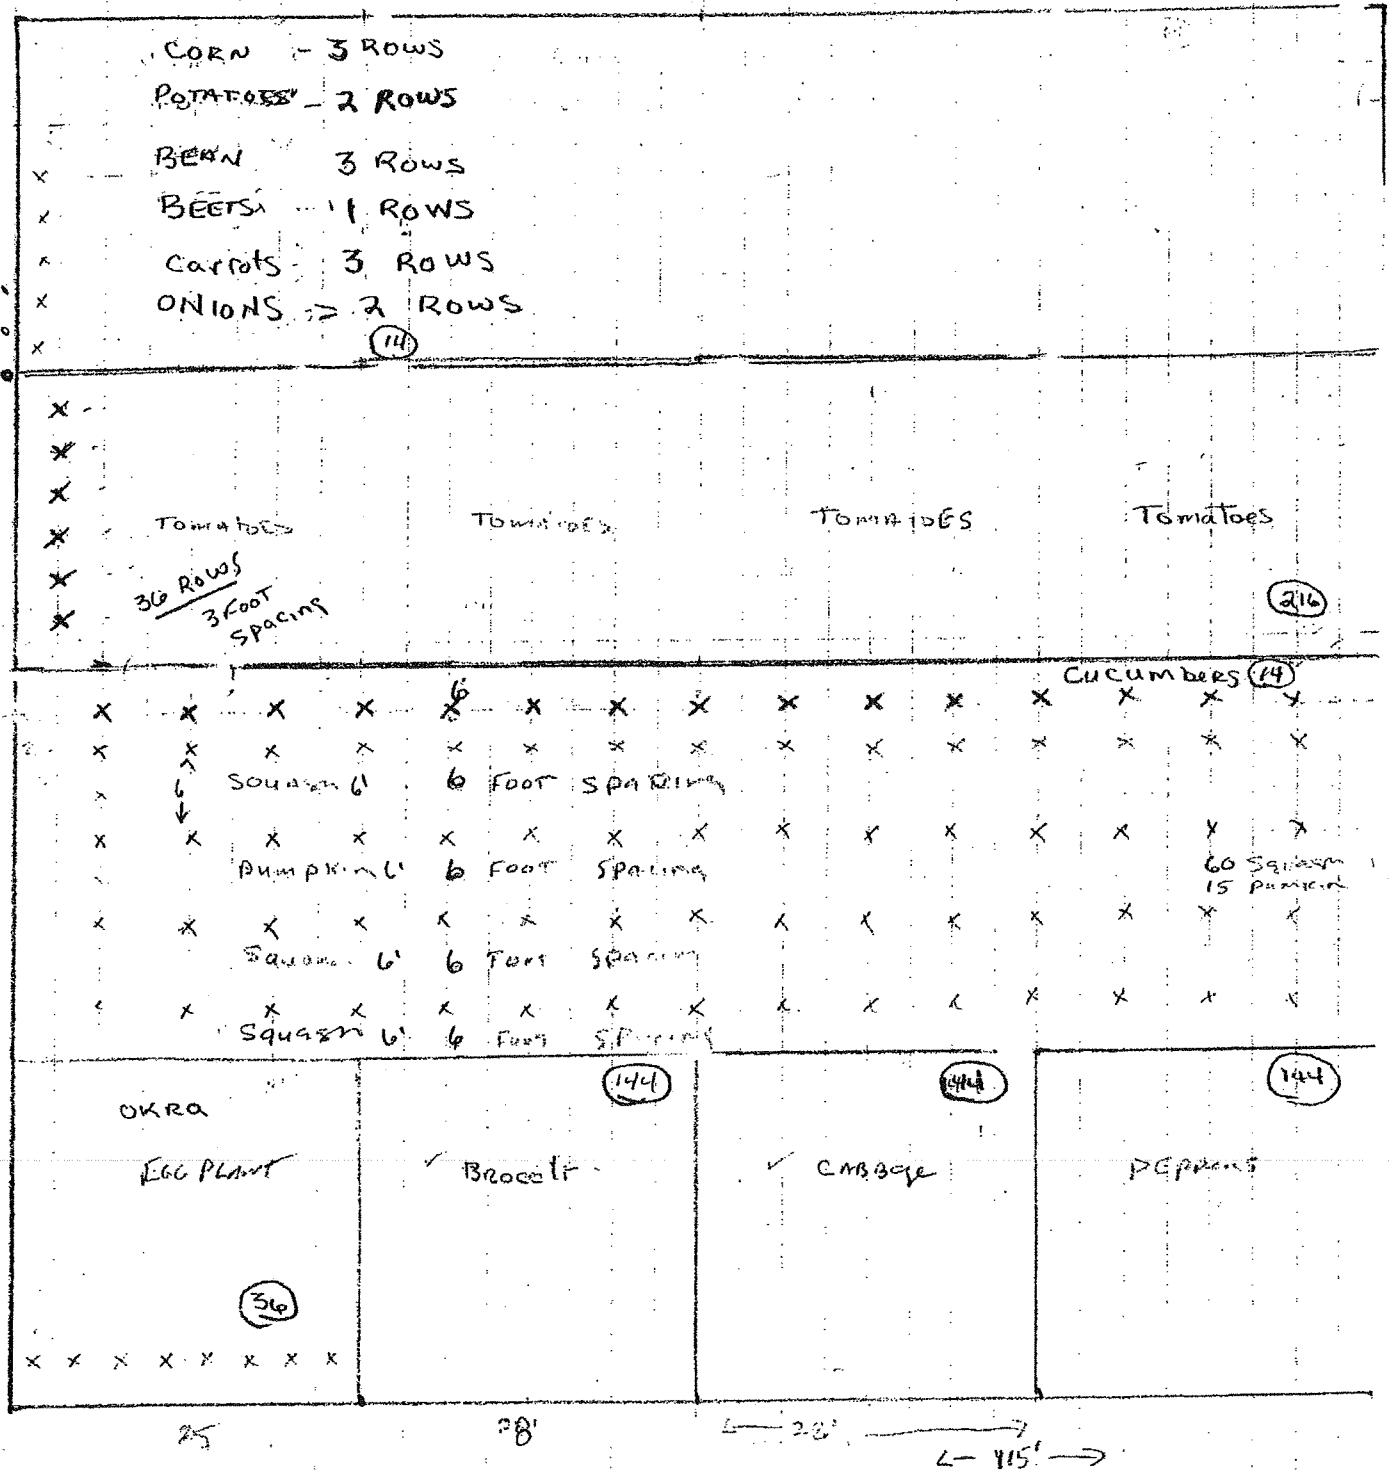 CORN - 3 ROWS
POTATOES - 2 ROWS
BEAN 3 ROWS
BEETS - 1 ROWS
Carrots - 3 ROWS
ONIONS - 2 ROWS
14
TOMATOES TOMATOES TOMATOES Tomatoes
36 ROWS
3 FOOT
Spacing
216
CUCUMbers 14
6'
6
SQUASH 6' 6 FOOT SPACING
PUMPKIN 6' 6 FOOT SPACING
60 Squash
15 Pumkin
Squash 6' 6 Foot Spacing
Squash 6' 6 Foot SPacing
144 144 144
OKRA
EGG PLANT Brocoli CABBage PEPPERS
36
25 28' 28'
115'